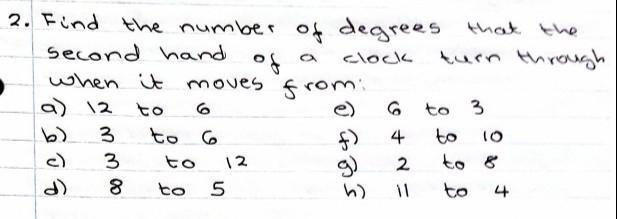 2. Find the number of degrees that the
second hand of a clock turn through
when it moves from:
a) 12 to 6 e) 6 to 3
b) 3 to 6 f) 4 to 10
c) 3 to 12 g) 2 to 8
d) 8 to 5 h) 11 to 4